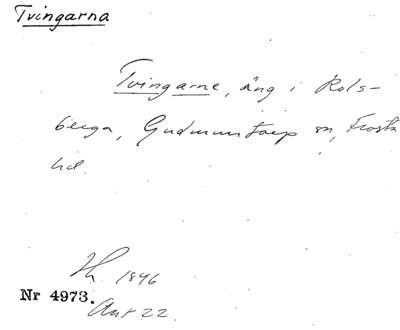 Tvingarna
Tvingarne, äng i Rols-
berga, Gudmuntorp sn, Frosta
hd.
1846
Nr 4973.
Akt 22.